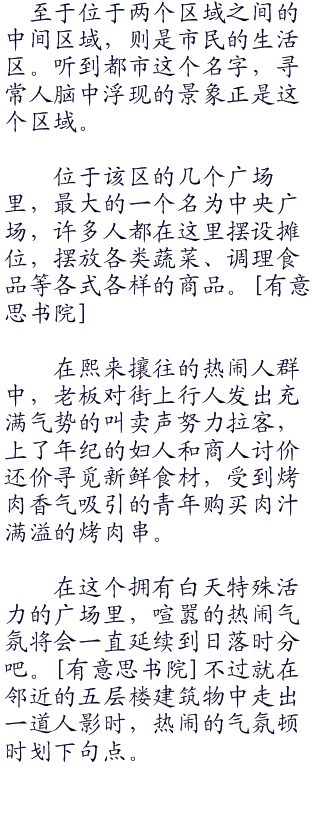 至于位于两个区域之间的
中间区域，则是市民的生活
区。听到都市这个名字，寻
常人脑中浮现的景象正是这
个区域。
位于该区的几个广场
里，最大的一个名为中央广
场，许多人都在这里摆设摊
位，摆放各类蔬菜、调理食
品等各式各样的商品。[有意
思书院]
在熙来攘往的热闹人群
中，老板对街上行人发出充
满气势的叫卖声努力拉客，
上了年纪的妇人和商人讨价
还价寻觅新鲜食材，受到烤
肉香气吸引的青年购买肉汁
满溢的烤肉串。
在这个拥有白天特殊活
力的广场里，喧嚣的热闹气
氛将会一直延续到日落时分
吧。[有意思书院]不过就在
邻近的五层楼建筑物中走出
一道人影时，热闹的气氛顿
时划下句点。